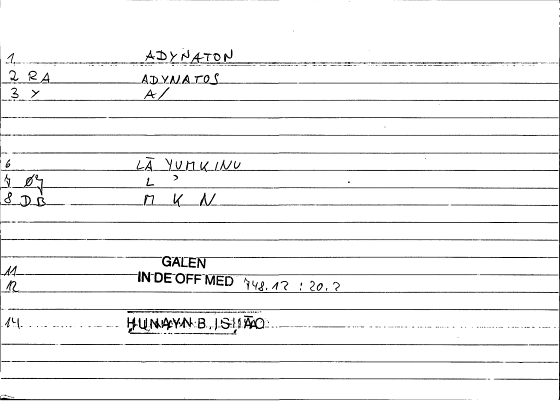 1. ADYNATON
2 RA ADYNATOS
3 Y A/
6 LĀ YUMKINU
7 L ʾ
8 DB M K N
11 GALEN
12 IN DE OFF MED 748.12 : 20.2
14. HUNAYN B. ISḤĀQ